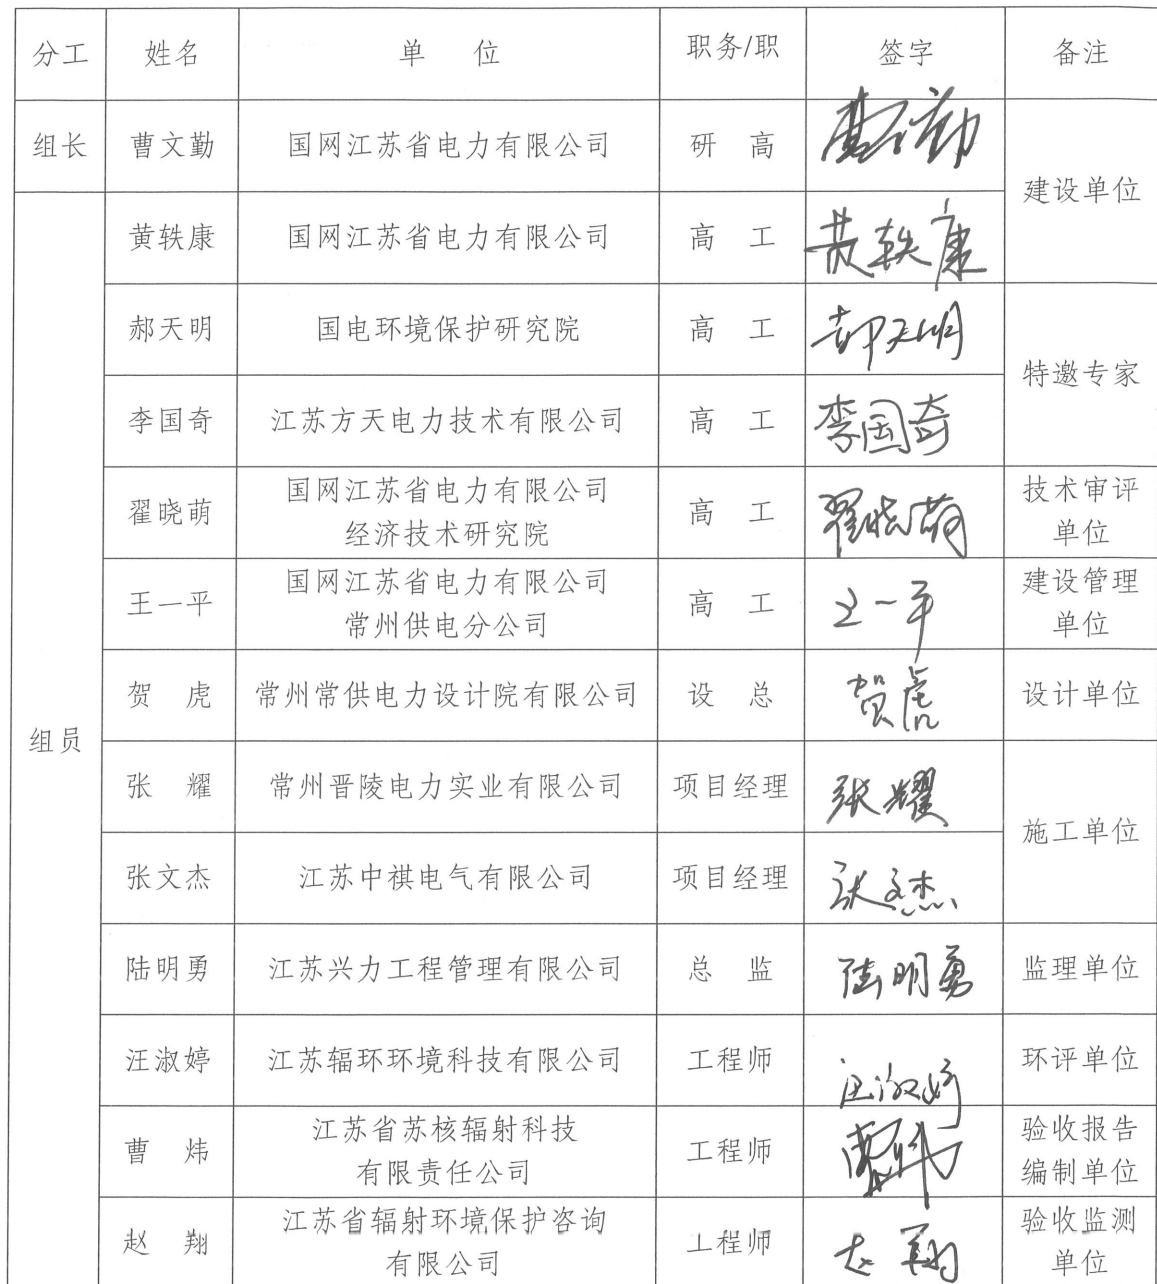 分工 姓名 单 位 职务/职 签字 备注
组长 曹文勤 国网江苏省电力有限公司 研 高 曹文勤 建设单位
组员 黄轶康 国网江苏省电力有限公司 高 工 黄轶康
郝天明 国电环境保护研究院 高 工 郝天明 特邀专家
李国奇 江苏方天电力技术有限公司 高 工 李国奇
翟晓萌 国网江苏省电力有限公司
经济技术研究院 高 工 翟晓萌 技术审评
单位
王一平 国网江苏省电力有限公司
常州供电分公司 高 工 王一平 建设管理
单位
贺 虎 常州常供电力设计院有限公司 设 总 贺虎 设计单位
张 耀 常州晋陵电力实业有限公司 项目经理 张耀 施工单位
张文杰 江苏中祺电气有限公司 项目经理 张文杰
陆明勇 江苏兴力工程管理有限公司 总 监 陆明勇 监理单位
汪淑婷 江苏辐环环境科技有限公司 工程师 汪淑婷 环评单位
曹 炜 江苏省苏核辐射科技
有限责任公司 工程师 曹炜 验收报告
编制单位
赵 翔 江苏省辐射环境保护咨询
有限公司 工程师 赵翔 验收监测
单位